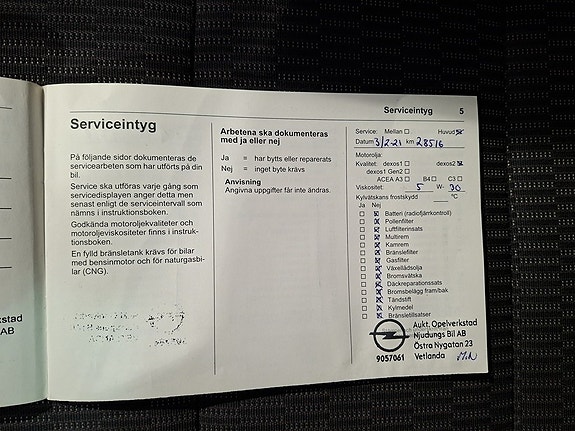 Serviceintyg 5
Serviceintyg
På följande sidor dokumenteras de
servicearbeten som har utförts på din
bil.
Service ska utföras varje gång som
servicedisplayen anger detta men
senast enligt de serviceintervall som
nämns i instruktionsboken.
Godkända motoroljekvaliteter och
motoroljeviskositeter finns i instruk-
tionsboken.
En fylld bränsletank krävs för bilar
med bensinmotor och för naturgasbi-
lar (CNG).
Arbetena ska dokumenteras
med ja eller nej
Ja = har bytts eller reparerats
Nej = inget byte krävs
Anvisning
Angivna uppgifter får inte ändras.
Service: Mellan Huvud
Datum 3/2-21 km 28516
Motorolja:
Kvalitet: dexos1 dexos2
dexos1 Gen2
ACEA A3 B4 C3
Viskositet: 5 W- 30
Kylvätskans frostskydd °C
Ja Nej
Batteri (radiofjärrkontroll)
Pollenfilter
Luftfilterinsats
Multirem
Kamrem
Bränslefilter
Gasfilter
Växellådsolja
Bromsvätska
Däckreparationssats
Bromsbelägg fram/bak
Tändstift
Kylmedel
Bränsletillsatser
Aukt. Opelverkstad
Njudungs Bil AB
Östra Nygatan 23
9057061 Vetlanda
rkstad
AB